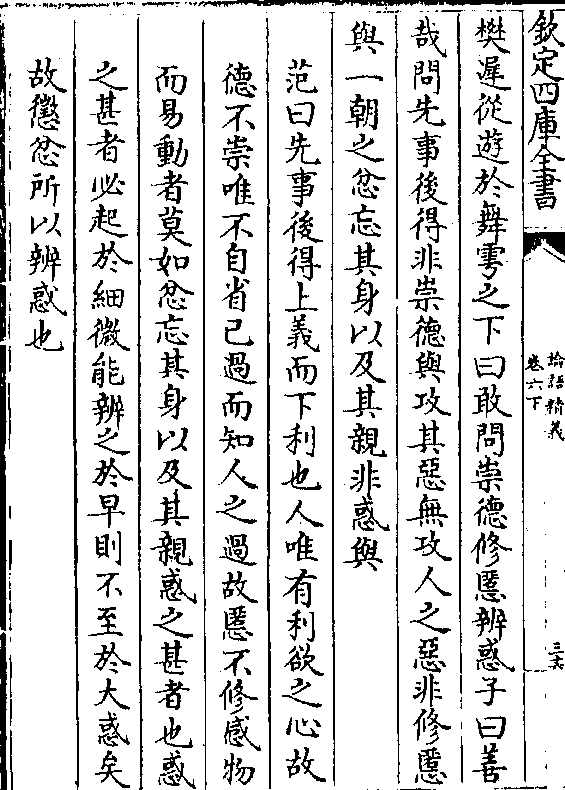 欽定四庫全書
論語精義
卷六下
三六
樊遲從遊於舞雩之下曰敢問崇德修慝辨惑子曰善
哉問先事後得非崇德與攻其惡無攻人之惡非修慝
與一朝之忿忘其身以及其親非惑與
范曰先事後得上義而下利也人唯有利欲之心故
德不崇唯不自省己過而知人之過故慝不修感物
而易動者莫如忿忘其身以及其親惑之甚者也惑
之甚者必起於細微能辨之於早則不至於大惑矣
故懲忿所以辨惑也